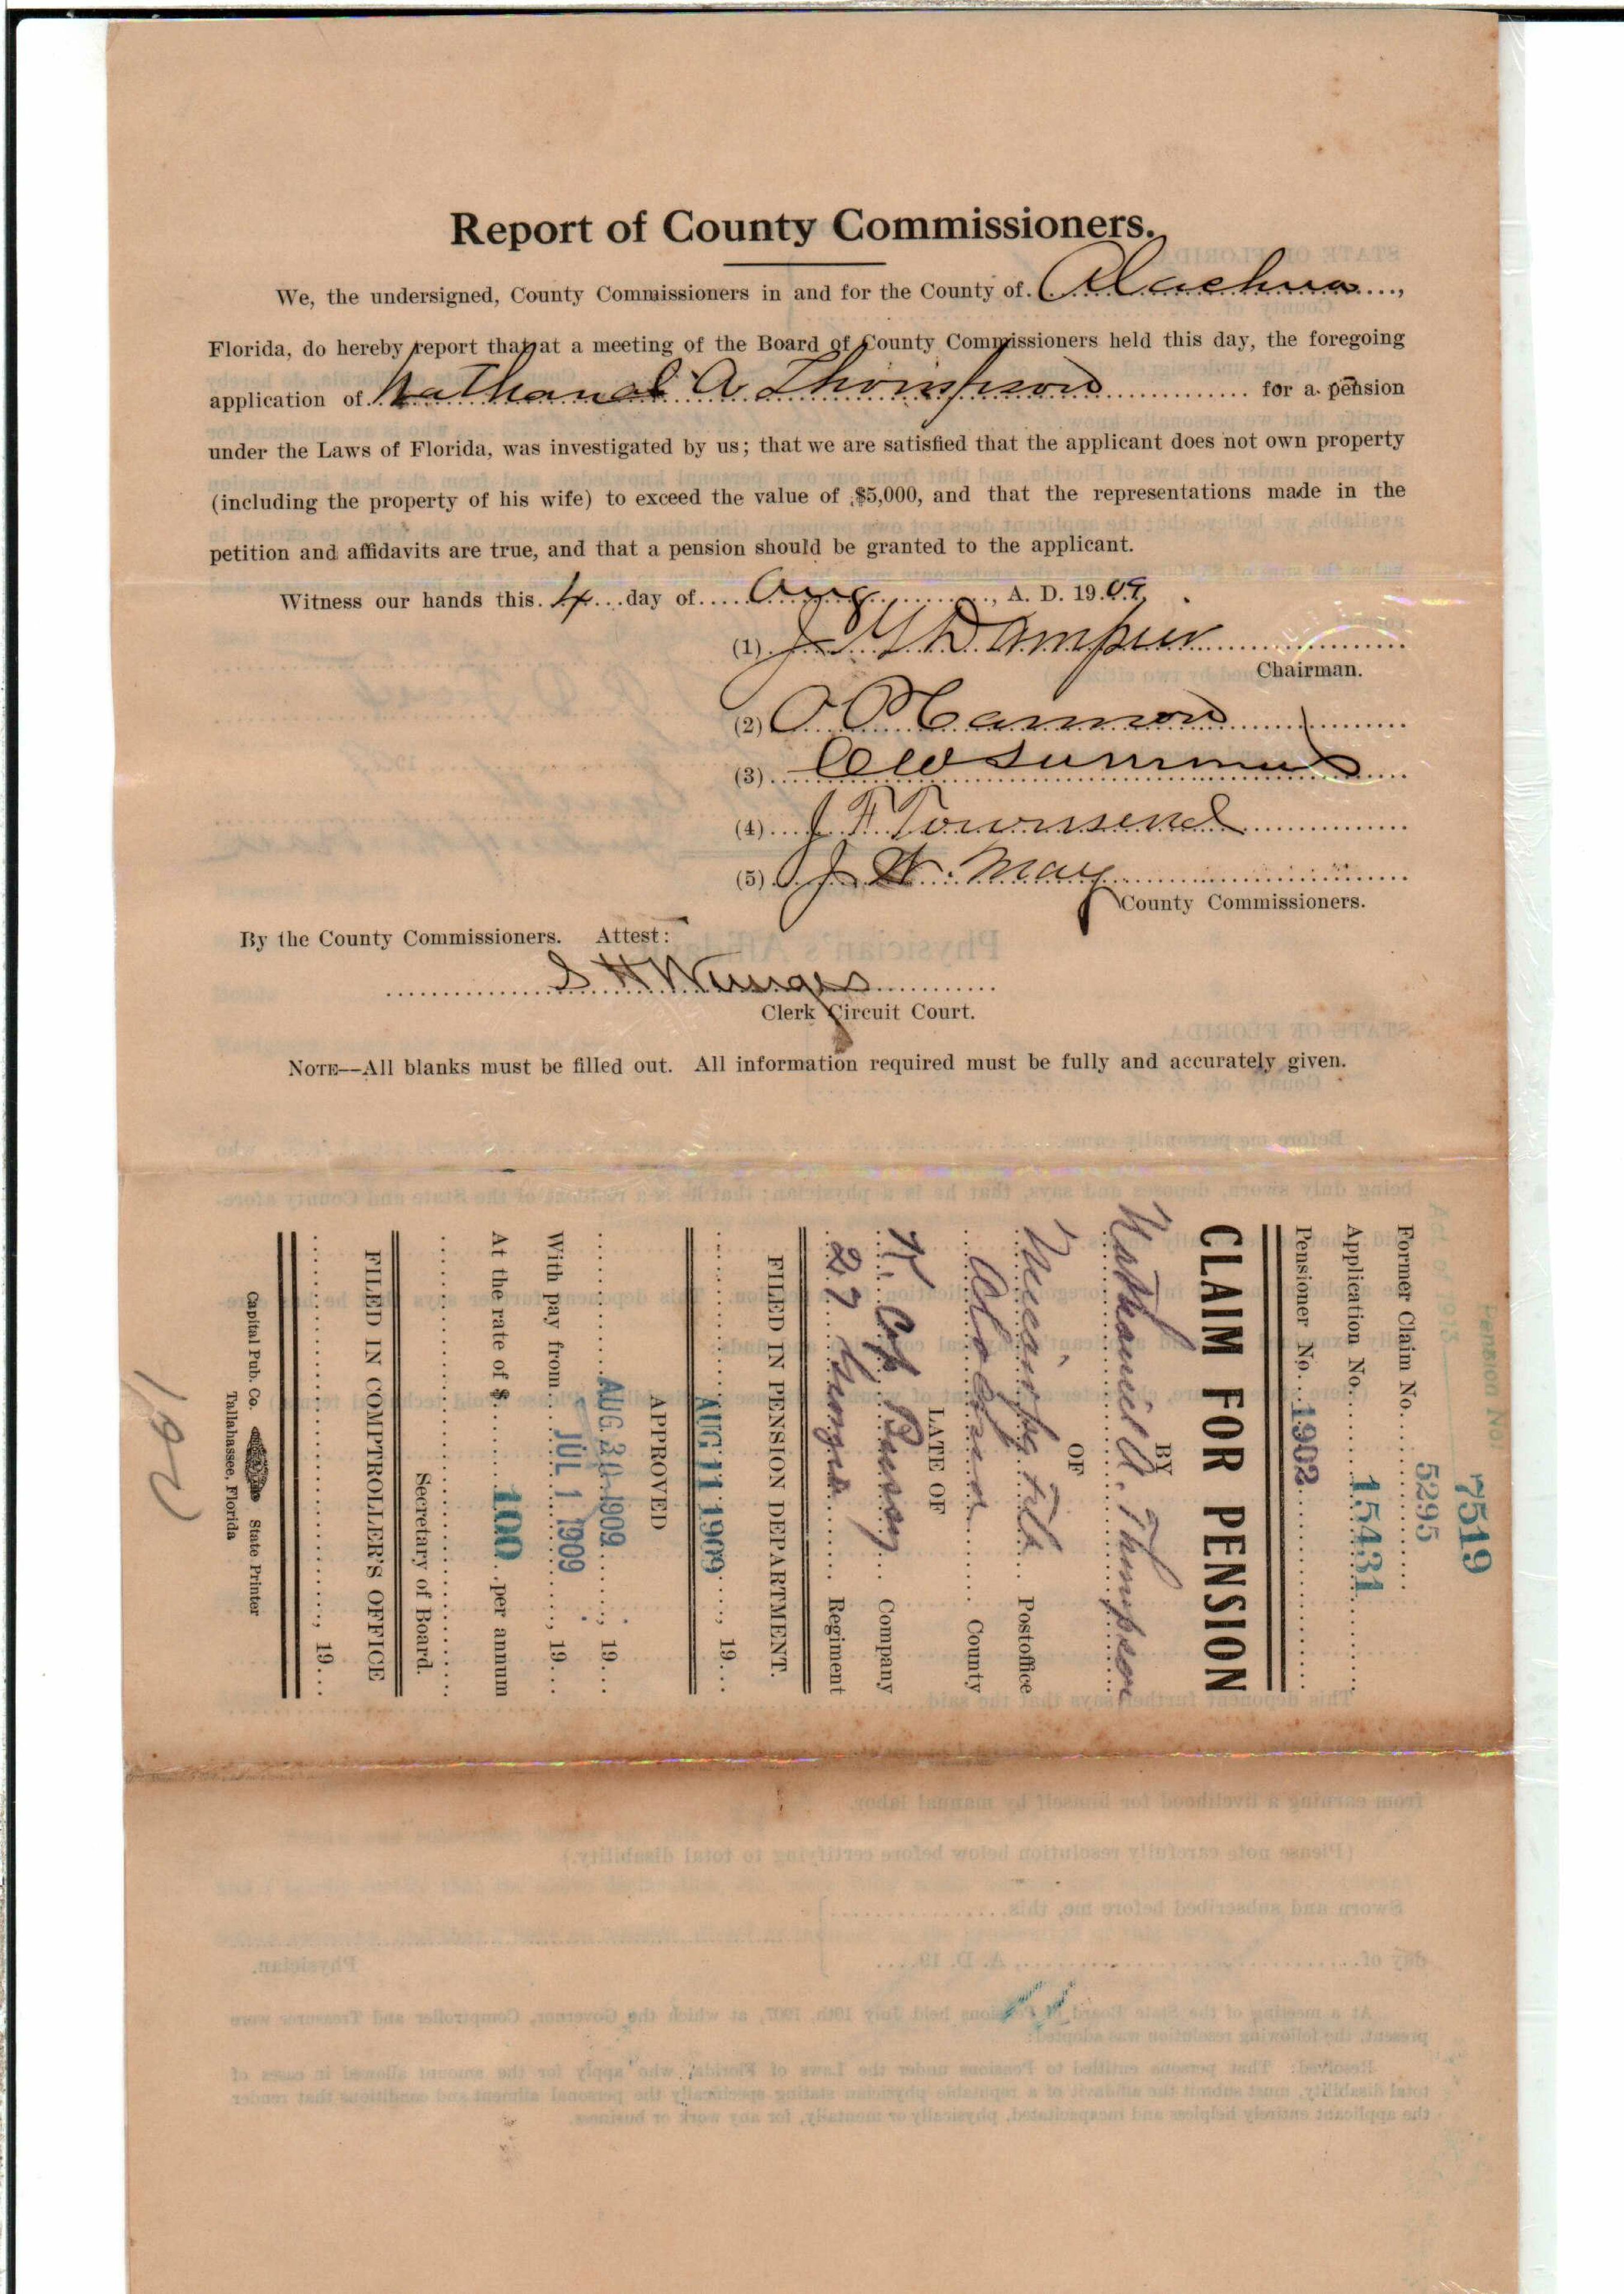 Report of County Commissioners.
We, the undersigned, County Commissioners in and for the County of Alachua,
Florida, do hereby report that at a meeting of the Board of County Commissioners held this day, the foregoing
application of Nathanal A Thompson for a pension
under the Laws of Florida, was investigated by us; that we are satisfied that the applicant does not own property
(including the property of his wife) to exceed the value of $5,000, and that the representations made in the
petition and affidavits are true, and that a pension should be granted to the applicant.
Witness our hands this 4 day of Aug, A. D. 1909.
(1) J G Dampier
Chairman.
(2) O P Cannon
(3) C W Summers
(4) J F Townsend
(5) J W. May
County Commissioners.
By the County Commissioners. Attest:
S H Wienges
Clerk Circuit Court.
NOTE—All blanks must be filled out. All information required must be fully and accurately given.
Pension No.
7519
Act of 1913
5295
Former Claim No.
Application No. 15431
Pensioner No. 1902
CLAIM FOR PENSION
BY
Nathaniel A. Thompson
OF
Micanopy Fla Postoffice
Alachua County
LATE OF
H. Company
27 Georgia Regiment
FILED IN PENSION DEPARTMENT.
AUG 11 1909, 19
APPROVED
AUG 20 1909, 19
With pay from JUL 1 1909, 19
At the rate of $ 100 per annum
Secretary of Board.
FILED IN COMPTROLLER'S OFFICE
, 19
Capital Pub. Co. State Printer
Tallahassee, Florida